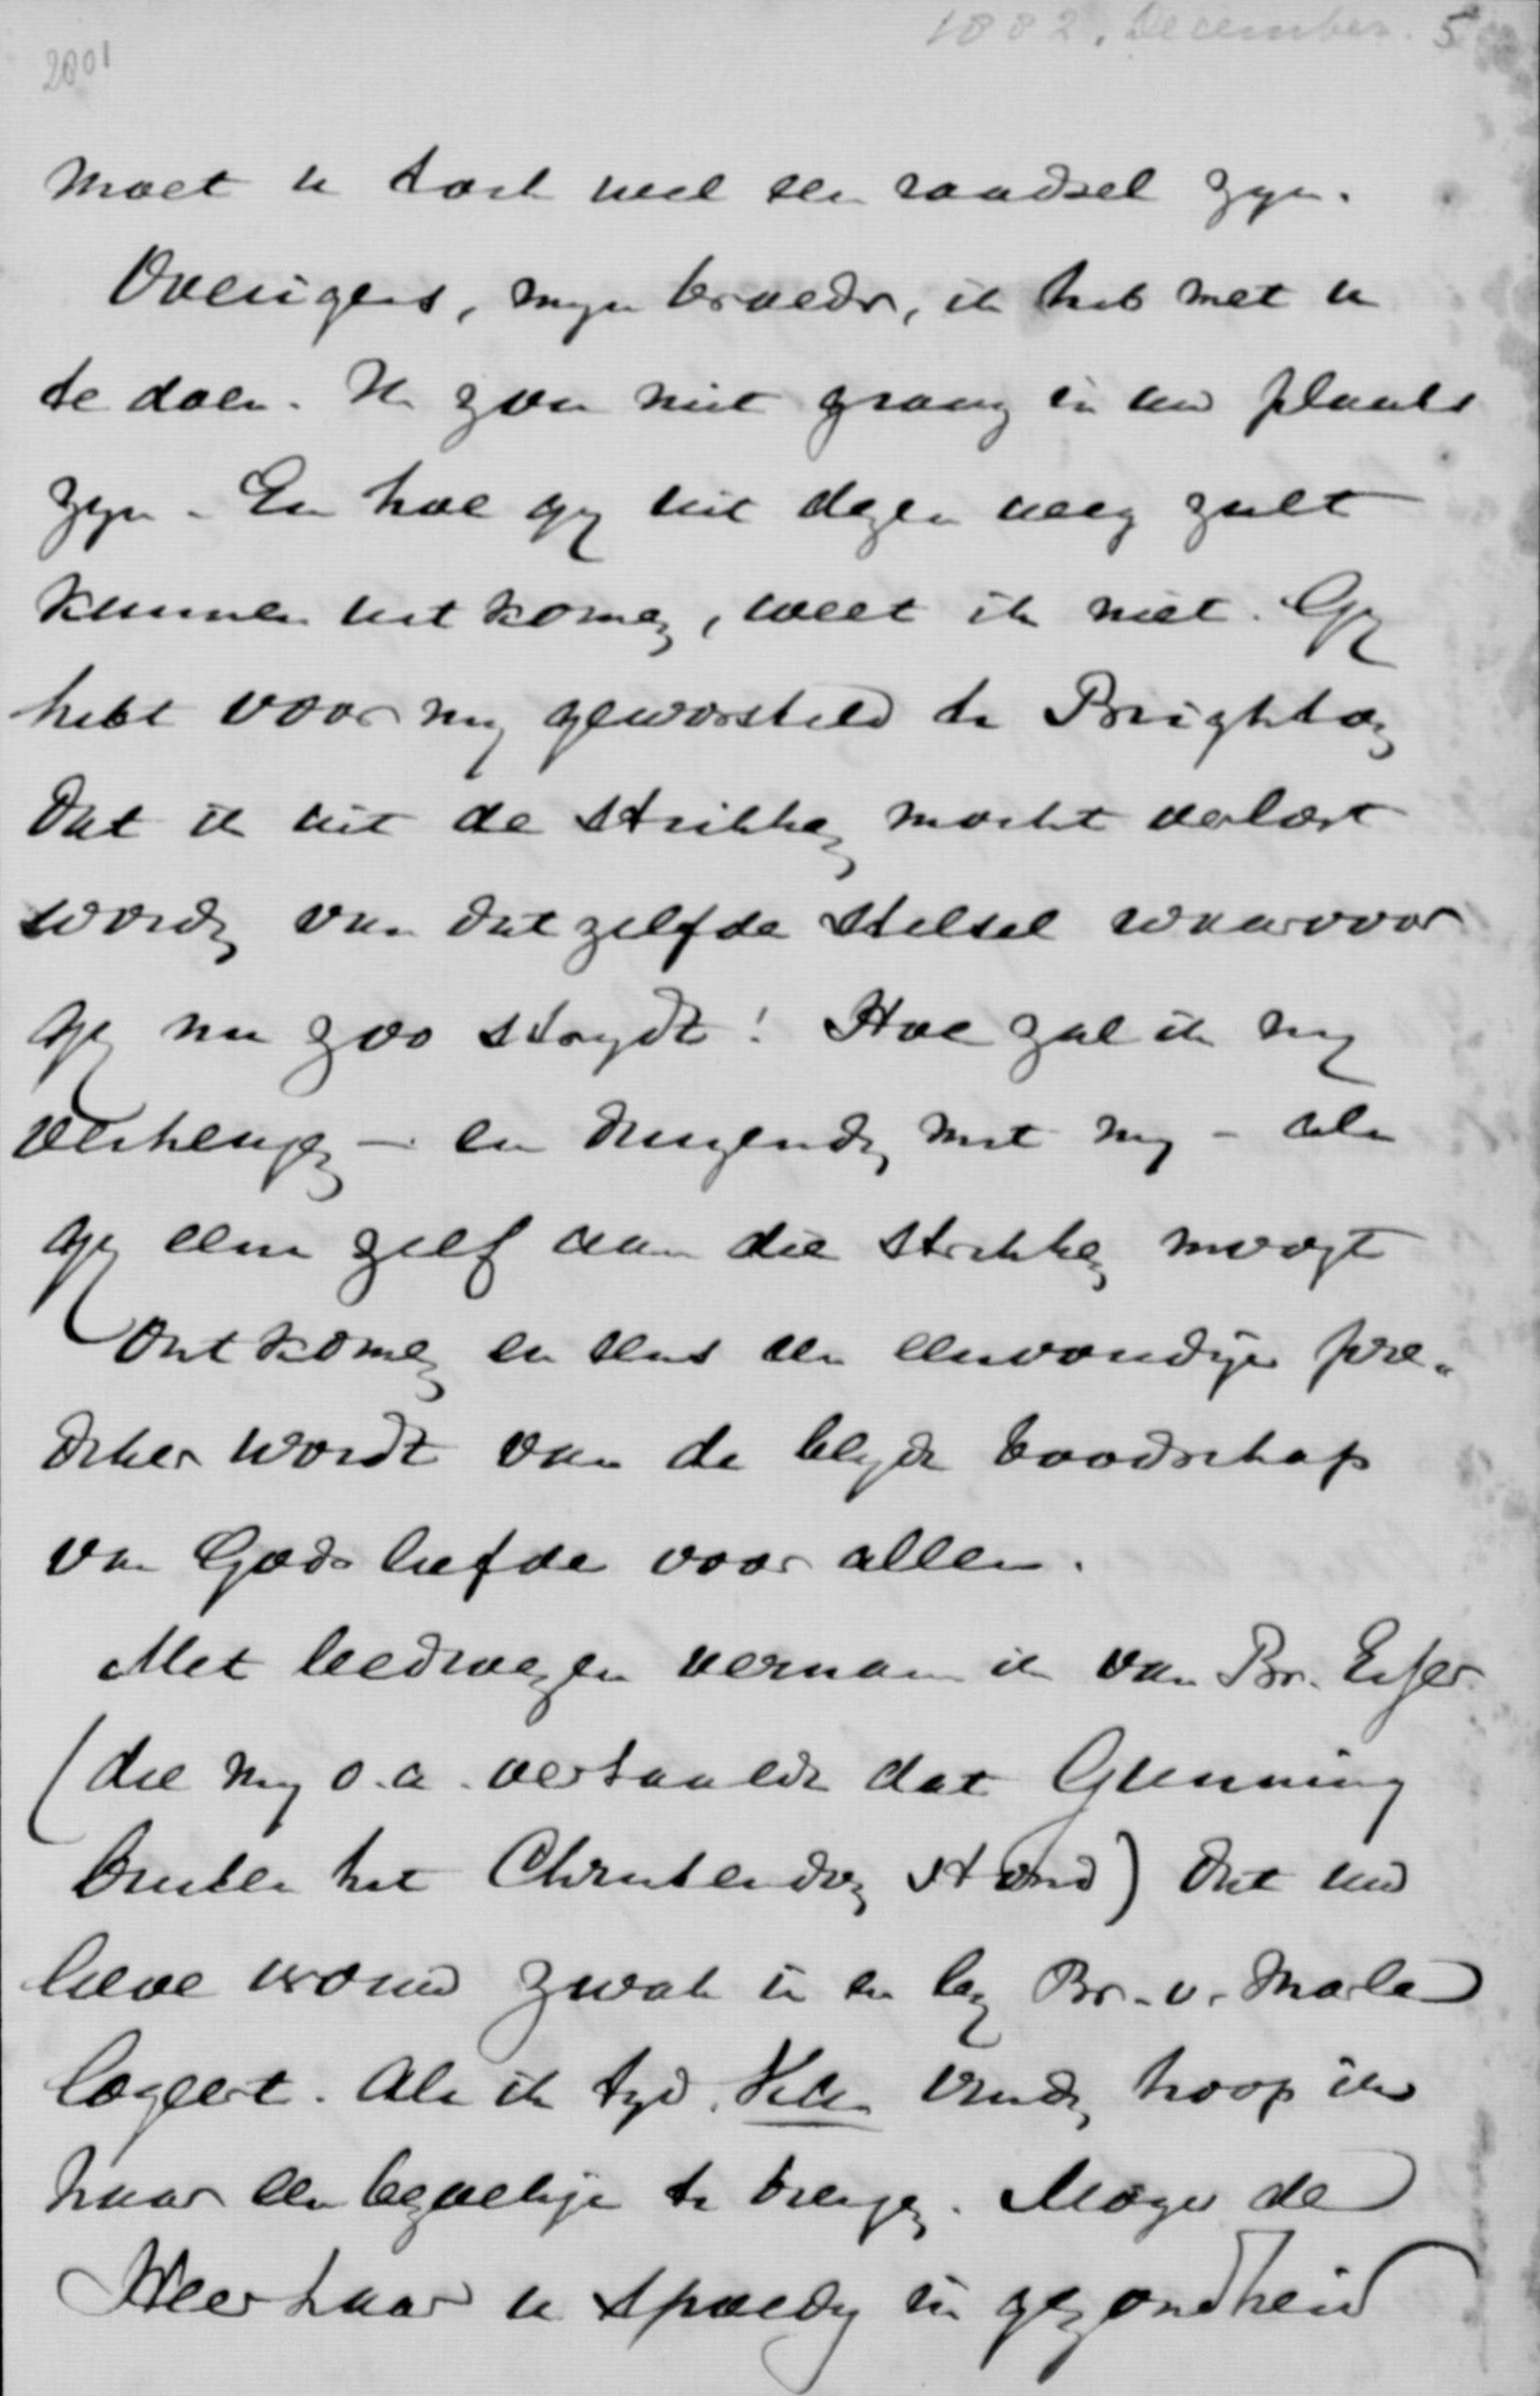 1882. December. 5
2001
moet u toch wel een raadsel zyn.
Overigens, myn broeder, ik heb met u
te doen. Ik zou niet graag in uw plaats
zyn. En hoe gy uit dezen weg zult
kunnen uitkomen, weet ik niet. Gy
hebt voor my geworsteld te Brighton
dat ik uit de strikken mocht verlost
worden van datzelfde stelsel waarvoor
gy nu zoo strydt! Hoe zal ik my
verheugen – en duizenden met my – als
gy eens zelf aan die strikken moogt
ontkomen en eens een eenvoudige pre-
diker wordt van de blyde boodschap
van Gods liefde voor allen.
Met leedwezen vernam ik van Br. Esser
(die my o.a. vertaalde dat Gunning
buiten het Christendom stond) dat uw
lieve vrouw zwak is en by Br. v. Marle
logeert. Als ik tyd kan vinden hoop ik
haar een bezoekje te brengen. Moge de
Heer haar u spoedig in gezondheid